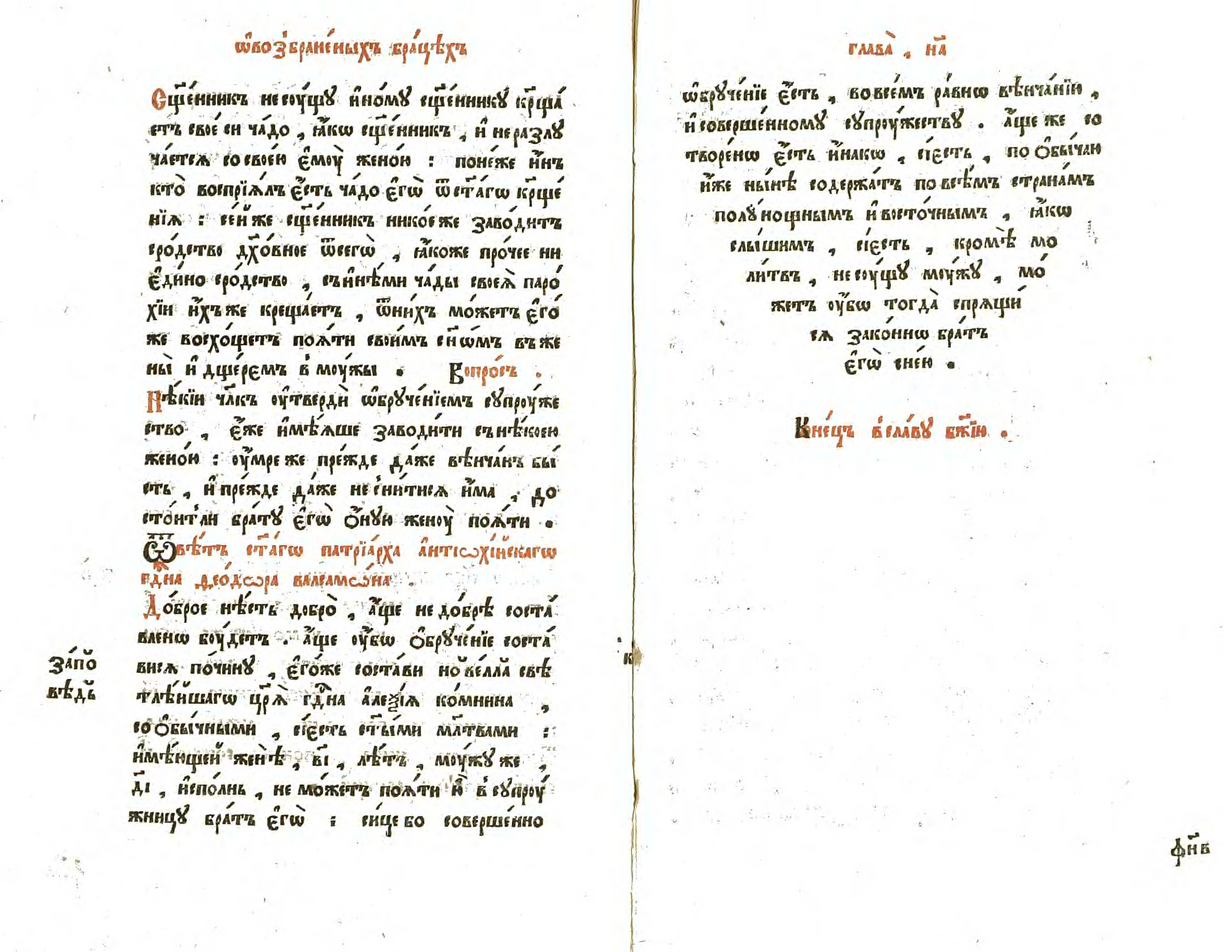 Ѡ҆возбране́ныхъ бра́цѣхъ
Сщ҃е́нникъ несꙋ́щꙋ и҆но́мꙋ сщ҃е́нникꙋ кр҃ща́
етъ своѐ си ча́до , ꙗ҆́кѡ сщ҃е́нникъ , и҆ неразлꙋ
ча́ется со свое́ю є҆мꙋ̀ жено́ю : поне́же и҆́нъ
кто̀ воспрїѧ́лъ є҆́сть ча́до є҆гѡ̀ ѿ ст҃а́гѡ кр҃ще́
нїѧ : се́й же сщ҃е́нникъ нико́еже заво́дитъ
сро́дство дх҃о́вное ѿ сегѡ̀ , ꙗ҆́коже про́чее ни
є҆ди́но сро́дство , съ и҆нѣ́ми ча́ды своеѧ̀ паро́
хїи и҆́хъже креща́етъ , ѿ ни́хъ мо́жетъ є҆го́
же восхо́щетъ поѧ́ти свои́мъ сн҃ѡ́мъ въ же
ны̀ и҆ дще́ремъ в̾ мꙋ́жы . Вопро́съ .
Нѣ́кїи чл҃къ ᲂу҆твердѝ ѡ҆брꙋче́нїемъ сꙋпрꙋ́же
ство , є҆́же и҆мѣ́ѧше заводи́ти съ нѣ́коею
жено́ю : ᲂу҆́мре же пре́жде да́же вѣнча́нъ бы́
сть , и҆ пре́жде да́же не сни́тисѧ и҆́ма , до
сто́итъ ли бра́тꙋ є҆гѡ̀ ѻ҆́нꙋю женꙋ̀ поѧ́ти .
Ѿвѣ́тъ ст҃а́гѡ патрїа́рха а҆нтїѡхі́йскагѡ
гд҃на Ѳео́дѡра валсамѡ́на .
До́брое нѣ́сть добро̀ , а҆́ще не до́брѣ соста́
вленѡ бꙋ́детъ . а҆́ще ᲂу҆́бѡ ѻ҆брꙋче́нїе соста́
висѧ по чи́нꙋ , є҆го́же соста́ви нове́лла свѣ
тлѣ́йшагѡ цр҃ѧ̀ гд҃на а҆леѯі́ѧ ко́мнина ,
со ѻ҆бы́чными , сїе́сть ст҃ы́ми мл҃твами :
и҆мѣ́ющей женѣ̀ , в҃і , лѣ́тъ , мꙋ́жꙋ же ,
д҃і , и҆спо́лнь , не мо́жетъ поѧ́ти ю҆̀ в̾ сꙋпрꙋ́
жницꙋ бра́тъ є҆гѡ̀ : си́це бо соверше́нно
За́по
вѣдь
глава̀ , н҃а
ѡ҆брꙋче́нїе є҆́сть , во все́мъ ра́внѡ вѣнча́нїю ,
и҆ соверше́нномꙋ сꙋпрꙋ́жествꙋ . А҆́ще же со
творе́нѡ є҆́сть и҆́накѡ , сїе́сть , по ѻ҆бы́чаю
и҆́же ны́нѣ содержа́тъ по всѣ́мъ страна́мъ
полꙋ́нощнымъ и҆ восто́чнымъ , ꙗ҆́кѡ
слы́шимъ , сїе́сть , кромѣ̀ мо
ли́твъ , несꙋ́щꙋ мꙋ́жꙋ , мо́
жетъ ᲂу҆́бѡ тогда̀ спрящи́
сѧ зако́ннѡ бра́тъ
є҆гѡ̀ с не́ю .
Коне́цъ в̾ сла́вꙋ бж҃їю .
фн҃в